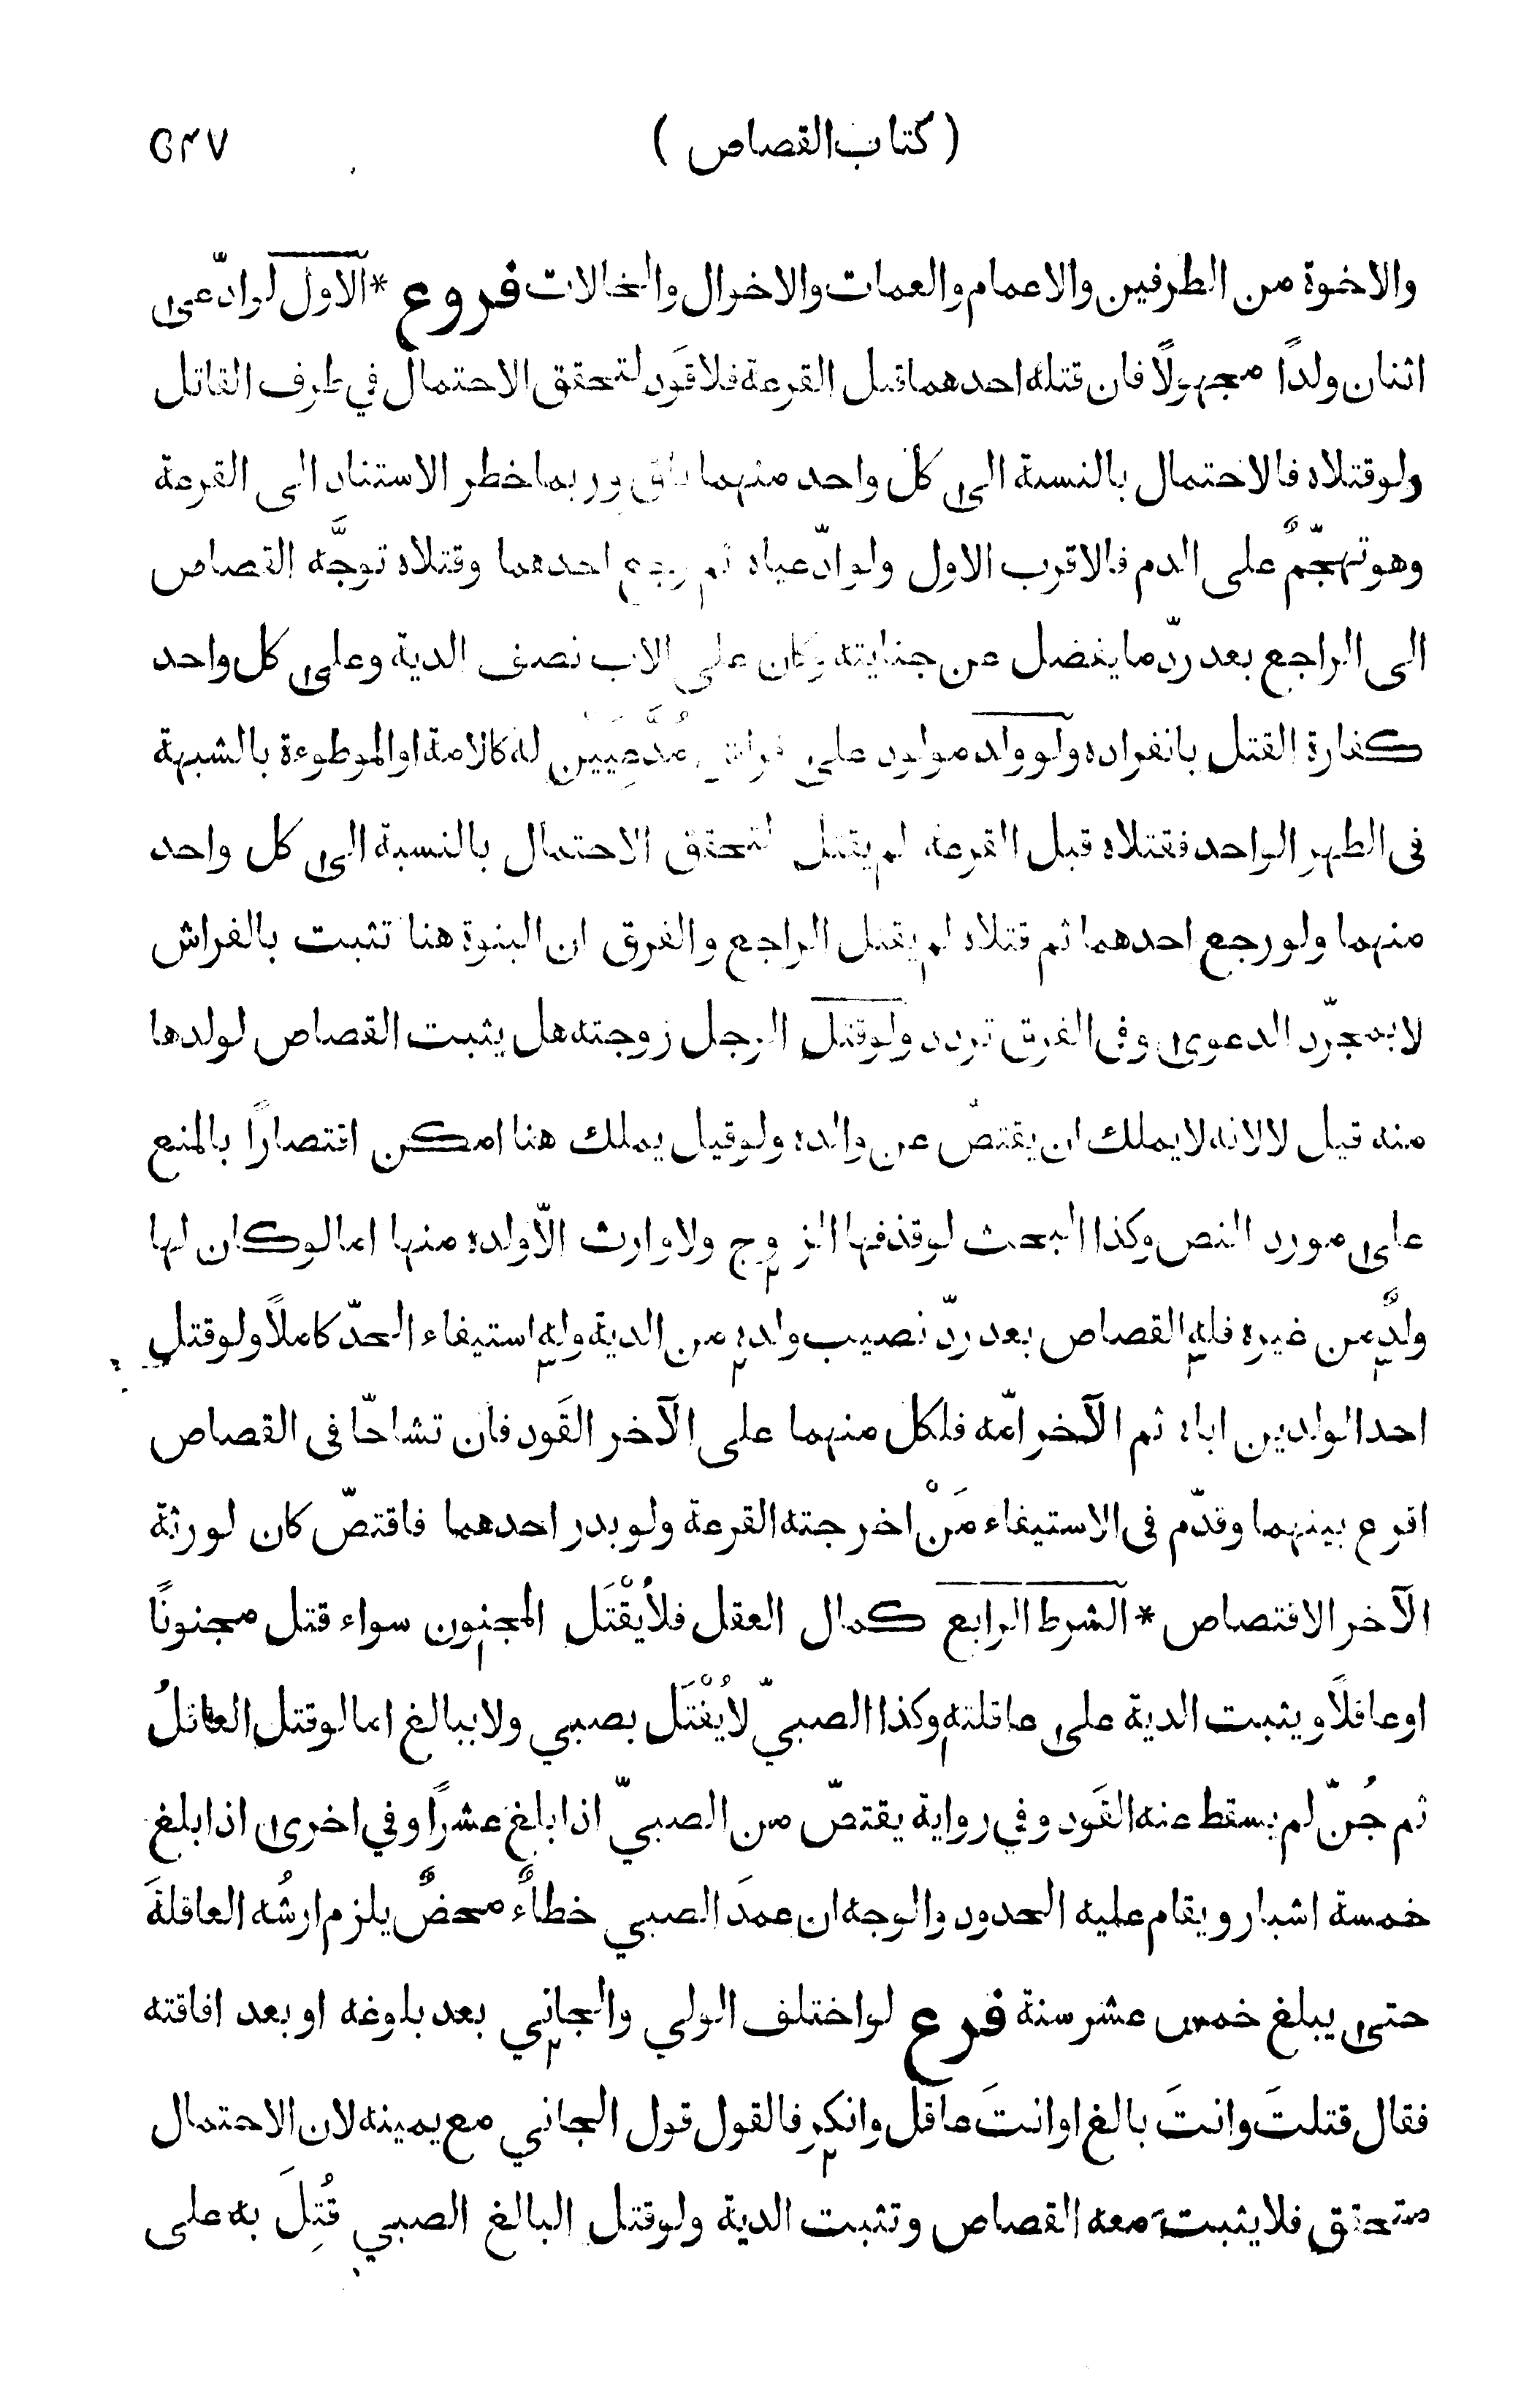 (كتاب القصاص) ٥٣٧
والاخوة من الطرفين والاعمام والعمات والاخوال والخالات فروع *الاول لو ادّعى
اثنان ولدًا مجهولًا فان قتله احدهما قبل القرعة فلا قَود لتحقق الاحتمال في طرف القاتل
ولو قتلاه فالاحتمال بالنسبة الى كل واحد منهما باق وربما خطر الاستناد الى القرعة
وهو تهجّمٌ على الدم فالاقرب الاول ولو ادّعياه ثم رجع احدهما وقتلاه توجَّه القصاص
الى الراجع بعد ردّ ما يفضل عن جنايته وكان على الاب نصف الدية وعلى كل واحد
كفارة القتل بانفراده ولو ولد مولود على فراش مُدَّعِيَيْن له كالامة او الموطوءة بالشبهة
فى الطهر الواحد فقتلاه قبل القرعة لم يقتل لتحقق الاحتمال بالنسبة الى كل واحد
منهما ولو رجع احدهما ثم قتلاه لم يقتل الراجع والفرق ان البنوة هنا تثبت بالفراش
لا بمجرّد الدعوى وفى الفرق تردد ولو قتل الرجل زوجته هل يثبت القصاص لولدها
منه قيل لا لانه لا يملك ان يقتص عن والده ولو قيل يملك هنا امكن اقتصارًا بالمنع
على مورد النص وكذا البحث لو قذفها الزوج ولا وارث الّا ولده منها اما لو كان لها
ولدٌ من غيره فله القصاص بعد ردّ نصيب ولده من الدية وله استيفاء الحدّ كاملًا ولو قتل
احد الولدين اباه ثم الآخر امّه فلكل منهما على الآخر القَود فان تشاحّا فى القصاص
اقرع بينهما وقدّم فى الاستيفاء مَنْ اخرجته القرعة ولو بدر احدهما فاقتصّ كان لورثة
الآخر الاقتصاص *الشرط الرابع كمال العقل فلا يُقْتَل المجنون سواء قتل مجنونًا
او عاقلًا ويثبت الدية على عاقلته وكذا الصبيّ لا يُقْتَل بصبي ولا ببالغ اما لو قتل العاقلُ
ثم جُنّ لم يسقط عنه القَود وفي رواية يقتصّ من الصبيّ اذا بلغ عشرًا وفي اخرى اذا بلغ
خمسة اشبار ويقام عليه الحدود والوجه ان عمدَ الصبي خطاءٌ محضٌ يلزم ارشُه العاقلةَ
حتى يبلغ خمس عشر سنة فرع لو اختلف الولي والجاني بعد بلوغه او بعد افاقته
فقال قتلتَ وانتَ بالغ او انتَ عاقل وانكر فالقول قول الجاني مع يمينه لان الاحتمال
متحقق فلا يثبت معه القصاص وتثبت الدية ولو قتل البالغ الصبي قُتِلَ به على